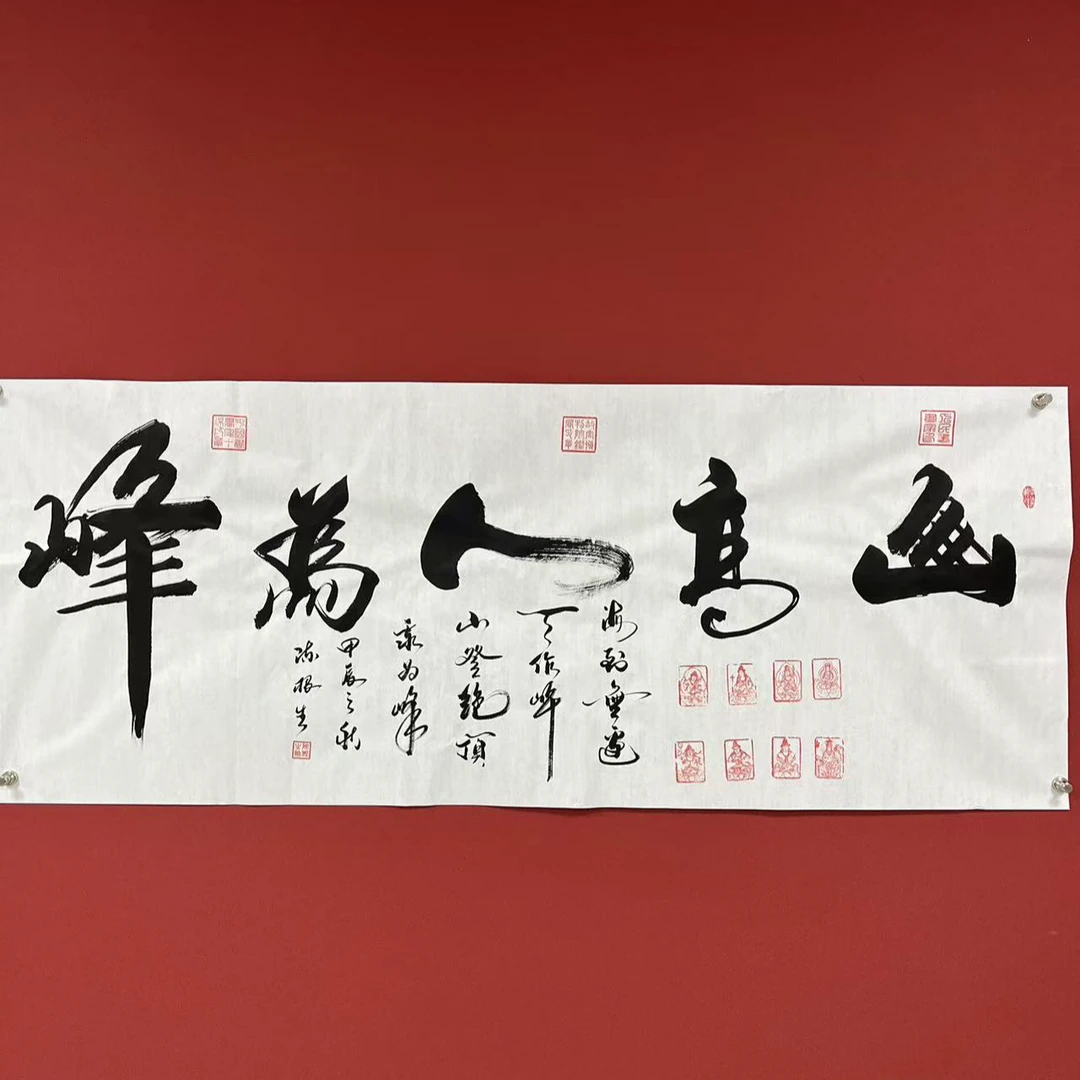 山高人為峰
海到無邊
天作岸
山登絕頂
我为峰
甲辰之秋
陈根生